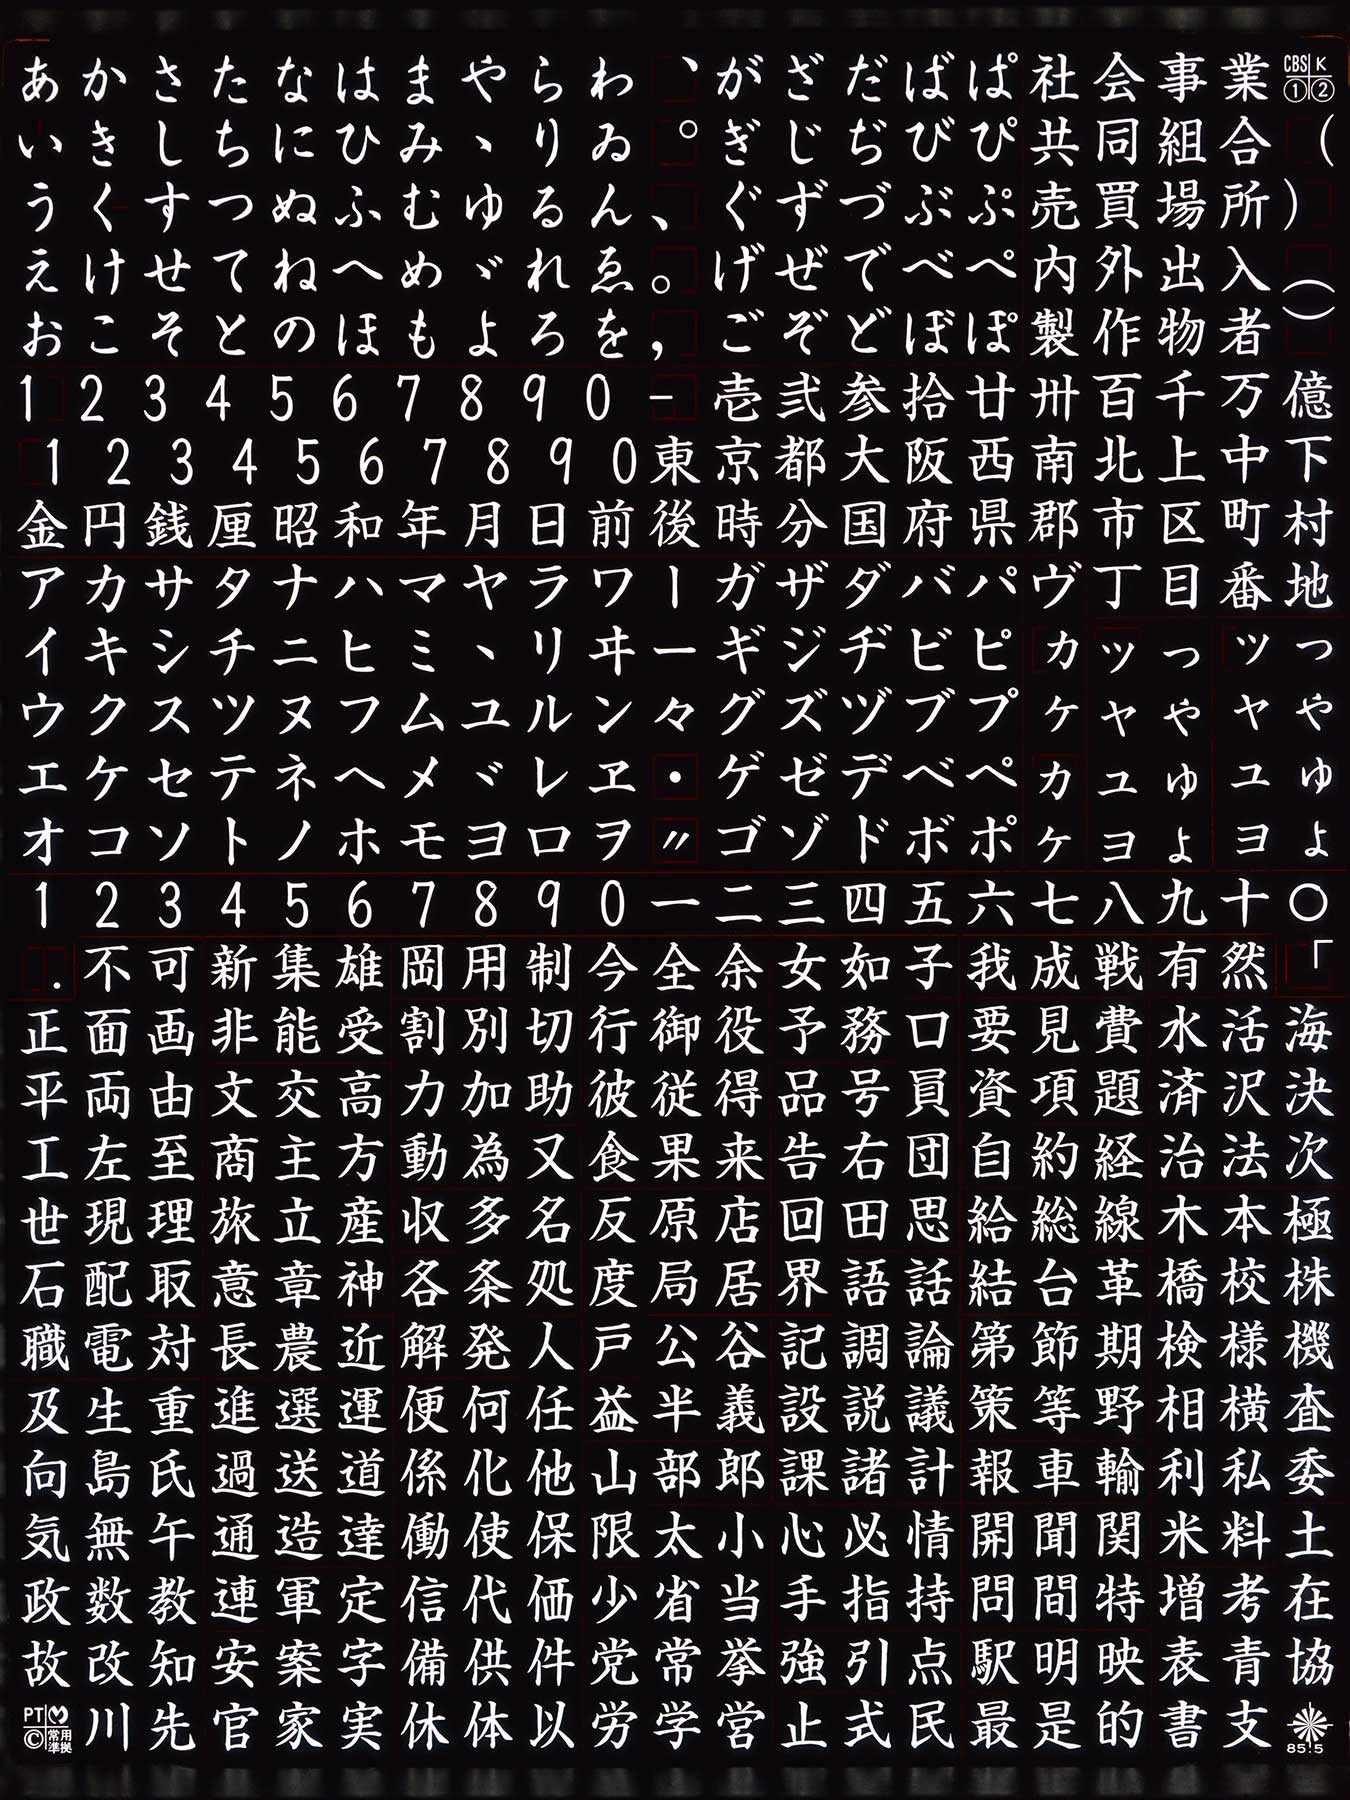 あ か さ た な は ま や ら わ 、 が ざ だ ば ぱ 社 会 事 業 CBS K ① ②
い き し ち に ひ み ヽ り ゐ 。 ぎ じ ぢ び ぴ 共 同 組 合 (
う く す つ ぬ ふ む ゆ る ん 、 ぐ ず づ ぶ ぷ 売 買 場 所 )
え け せ て ね へ め ゞ れ ゑ 。 げ ぜ で べ ぺ 内 外 出 入 (
お こ そ と の ほ も よ ろ を , ご ぞ ど ぼ ぽ 製 作 物 者 )
1 2 3 4 5 6 7 8 9 0 - 壱 弐 参 拾 廿 卅 百 千 万 億
1 2 3 4 5 6 7 8 9 0 東 京 都 大 阪 西 南 北 上 中 下
金 円 銭 厘 昭 和 年 月 日 前 後 時 分 国 府 県 郡 市 区 町 村
ア カ サ タ ナ ハ マ ヤ ラ ワ ー ガ ザ ダ バ パ ヴ 丁 目 番 地
イ キ シ チ ニ ヒ ミ ヽ リ ヰ ー ギ ジ ヂ ビ ピ カ ッ っ ッ っ
ウ ク ス ツ ヌ フ ム ユ ル ン 々 グ ズ ヅ ブ プ ケ ャ ゃ ャ ゃ
エ ケ セ テ ネ ヘ メ ヾ レ ヱ ・ ゲ ゼ デ ベ ペ カ ュ ゅ ュ ゅ
オ コ ソ ト ノ ホ モ ヨ ロ ヲ 〃 ゴ ゾ ド ボ ポ ケ ョ ょ ョ ょ
1 2 3 4 5 6 7 8 9 0 一 二 三 四 五 六 七 八 九 十 〇
. 不 可 新 集 雄 岡 用 制 今 全 余 女 如 子 我 成 戦 有 然 「
正 面 画 非 能 受 割 別 切 行 御 役 予 務 口 要 見 費 水 活 海
平 両 由 文 交 高 力 加 助 彼 従 得 品 号 員 資 項 題 済 沢 決
工 左 至 商 主 方 動 為 又 食 果 来 告 右 団 自 約 経 治 法 次
世 現 理 旅 立 産 収 多 名 反 原 店 回 田 思 給 総 線 木 本 極
石 配 取 意 章 神 各 条 処 度 局 居 界 語 話 結 台 革 橋 校 株
職 電 対 長 農 近 解 発 人 戸 公 谷 記 調 論 第 節 期 検 様 機
及 生 重 進 選 運 便 何 任 益 半 義 設 説 議 策 等 野 相 横 査
向 島 氏 過 送 道 係 化 他 山 部 郎 課 諸 計 報 車 輸 利 私 委
気 無 午 通 造 達 働 使 保 限 太 小 心 必 情 開 聞 関 米 料 土
政 数 教 連 軍 定 信 代 価 少 省 当 手 指 持 問 間 特 増 考 在
故 改 知 安 案 字 備 供 件 党 常 挙 強 引 点 駅 明 映 表 青 協
PT © 常用準拠 川 先 官 家 実 休 体 以 労 学 営 止 式 民 最 是 的 書 支 85.5